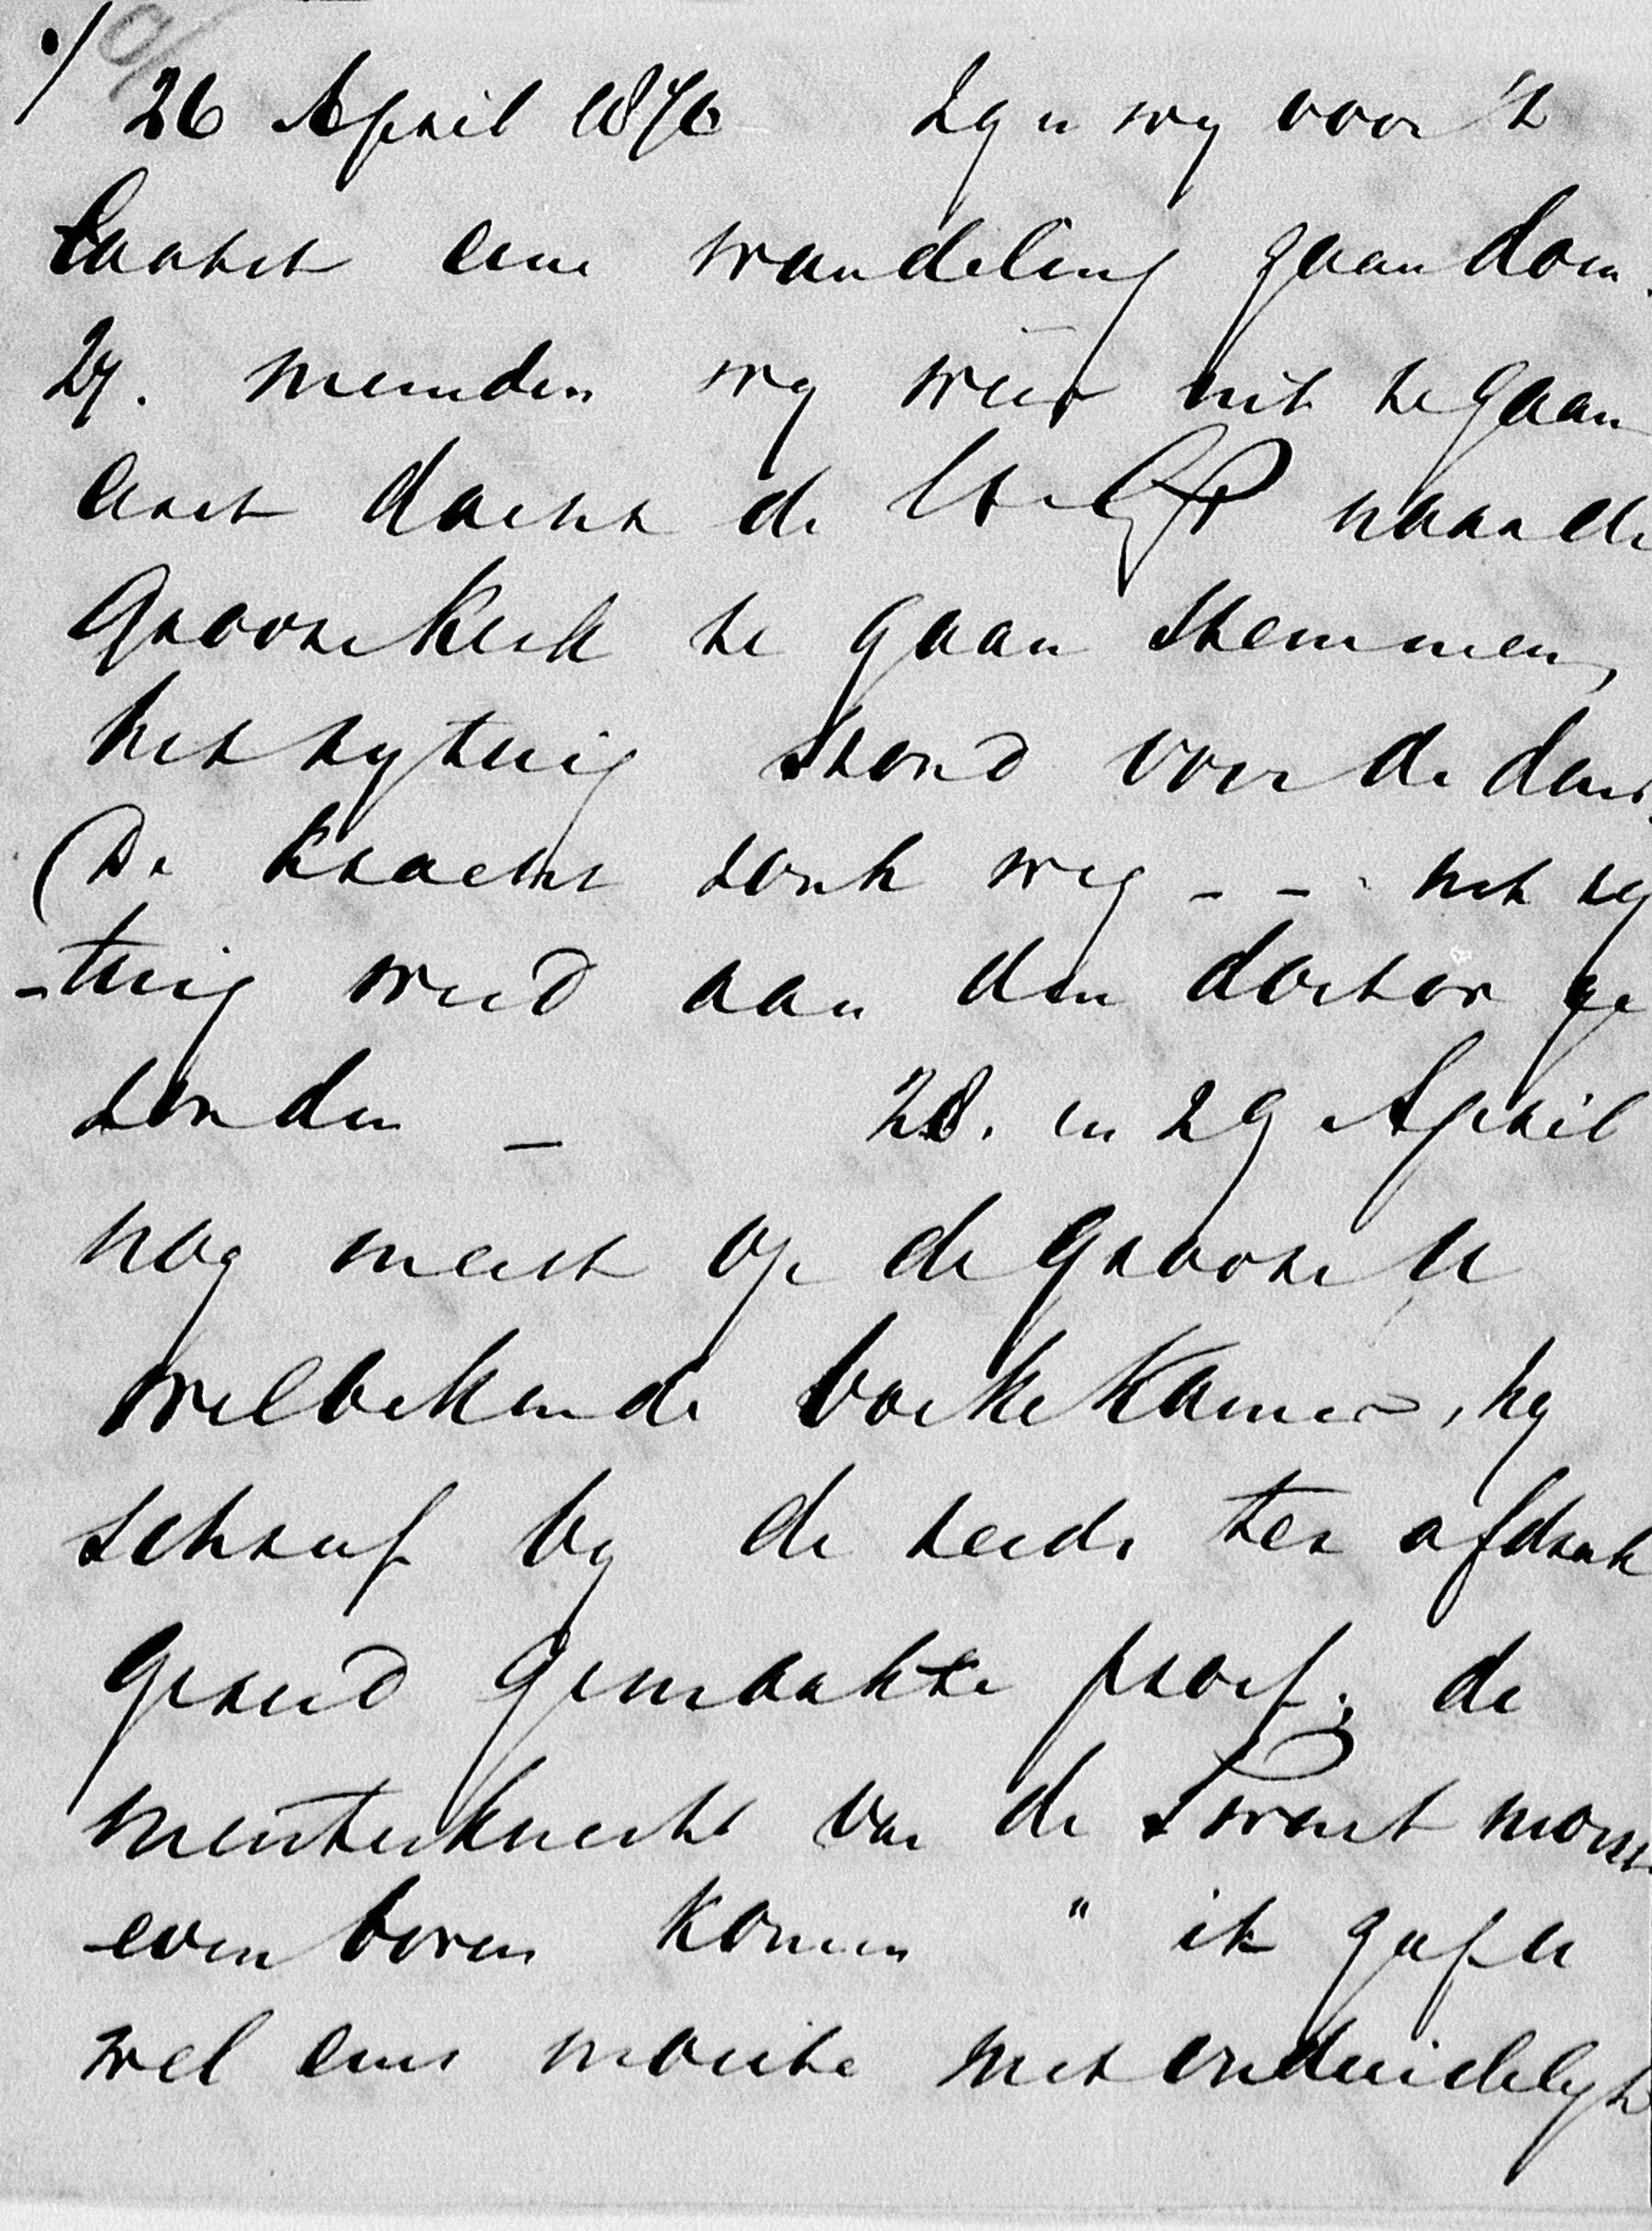 26 April 1870 Zyn wy voor 't
laatst eene wandeling gaan doen.
27. meenden wy weer uit te gaan
eerst dacht de naar de
Groote Kerk te gaan stemmen,
het rytuig stond voor de deur.
(De kracht zonk weg - - het ry
-tuig werd aan den doctor ge
zonden - 28. en 29 April
nog meest op de groote U
welbekende boekekamer, hy
schreef by de reeds ter afdruk
gereed gemaakte proef; de
meesterknecht van de Swart moest
even boven komen " ik gaf U
wel eens moeite met onduidelyk